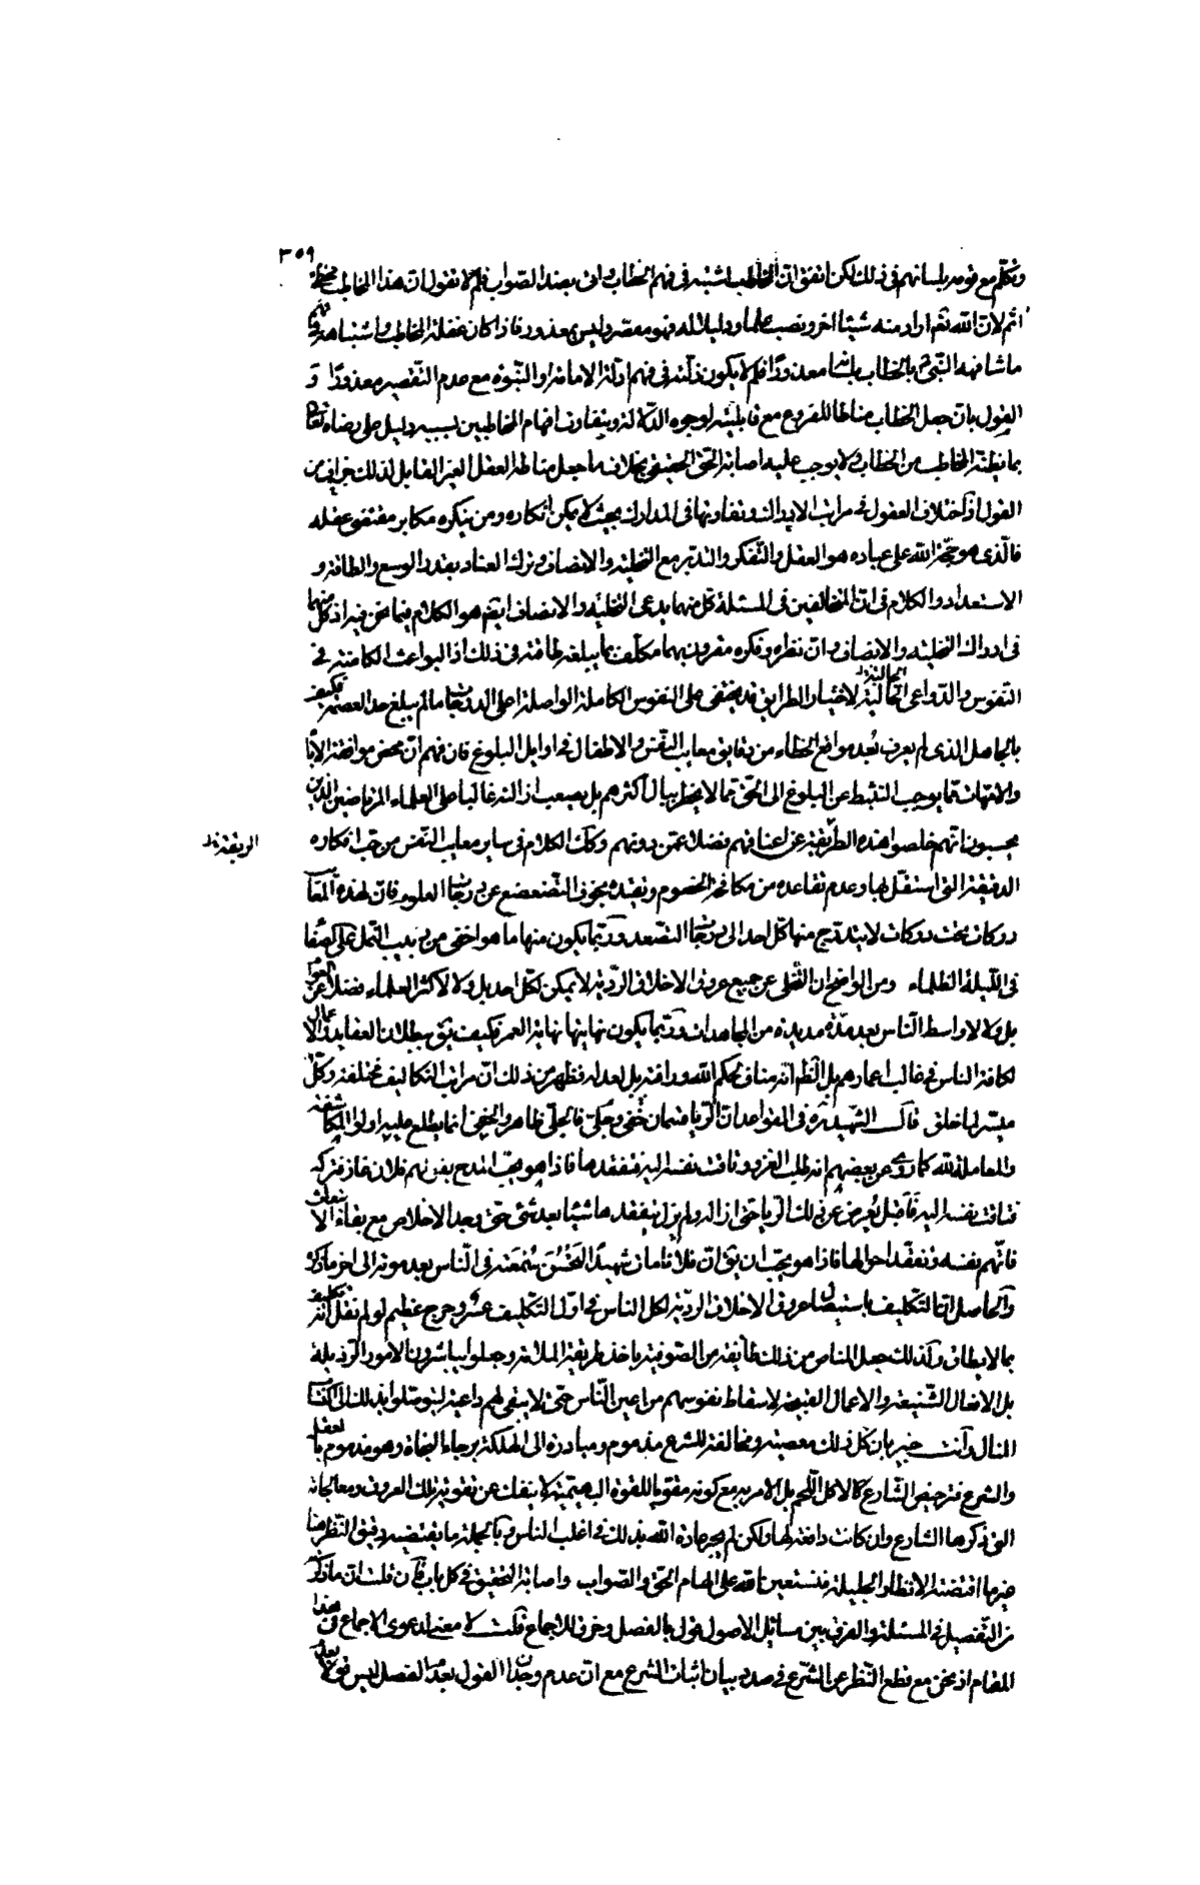 ٣٥٩
وتكلّم مع قومه بلسانهم في ذلك لكن اتفق انّ المخاطب اشتبه في فهم الخطاب واتى بضدّ الصّواب فلم لا تقول ان هذا المخاطب مخطئ
اثم لأنّ الله تعم اراد منه شيئا اخر ونصب علما ودليلا له فهو مقصّر وليس بمعذور فاذا كان غفلة المخاطب واشتباهه في فهم
ما شافهه النّبيّ بالخطاب معذورًا فلم لا يكون ذلك في فهم ادلّة الامامة او النّبوّة مع عدم التّقصير معذورًا و
القول بانّ جعل الخطاب مناطا للفروع مع قابليّته لوجوه الدّلالة ويتفاوت افهام المخاطبين بسببه دليل على رضاه تعالى
بما يظنّه المخاطب من الخطاب ولا يوجب عليه اصابة الحقّ الحقيقي بخلاف ما جعل مناطه العقل الغير القابل لذلك جزاف من
القول اذ اختلاف العقول في مراتب الادراك وتفاوتها في المدارك بحيث لا يمكن انكاره ومن ينكره مكابر مقتضى عقله
فالّذي هو حجّة الله على عباده هو العقل والتّفكر والتّدبّر مع التّخلية والانصاف وترك العناد بقدر الوسع والطاقة و
الاستعداد والكلام في انّ المخالفين في المسئلة كلّ منهما يدعى التخلية والانصاف ايضا هو الكلام فيما نحن فيه اذ كلّ منهما
في ادراك التخلية والانصاف وان نظره وفكره مقرون بهما مكلّف بما يبلغه طاقته في ذلك اذ البواعث الكامنة في
النّفوس والدّواعي لاختيار الطرايق قد يختفى على النفوس الكاملة الواصلة اعلى الدرجات ما لم يبلغ حد العصمة فكيف
بالجاهل الذي لم يعرف بُعد مواقع الخطاء من دقايق معايب النّفس والاطفال في اوايل البلوغ فان فهم انّ محض موافقة الآباء
والامّهات ممّا يوجب التثبّط عن البلوغ الى الحقّ ممّا لا يخطر ببال اكثرهم بل يصعب ازالته غالبا على العلماء المرتاضين الذين
يحسبون انّهم خلصوا هذه الطريقة عن اعناقهم فضلا عمّن دونهم وكذلك الكلام في ساير معايب النّفس من حبّ افكاره
الربقة ظ
الدقيقة التى استقلّ بها وعدم تقاعده من مكافحة الخصوم وتقيّده بخوف التّضعضع عن درجات العلوم فانّ لهذه المقامات
دركات تحت دركات لا يتدرّج منها كلّ احد الى درجات التّصعّد وربّما يكون منها ما هو اخفى من دبيب النّمل على الصّفا
في اللّيلة الظلماء ومن الواضح ان التخلى عن جميع عروق الاخلاق الرّديّة لا يمكن لكلّ احد بل ولا لاكثر العلماء فضلا عن العوام
بل ولا لاواسط النّاس بعد مدّة مديدة من المجاهدات وربّما يكون نهايتها نهاية العمر فكيف يق ببطلان العقايد والاعمال
لكافة الناس في غالب اعمارهم بل الظّم انّه مناف لحكم الله ورافته بل لعدله فظهر من ذلك انّ مراتب التكاليف مختلفة وكلّ
ميسّر لما خلق قال الشّهيد ره في القواعد ان الرّيا ضمان خفى وجلىّ فالجليّ ظاهر والخفىّ انما يطّلع عليه اولوا المكاشفة
والمعاملة لله كما روى عن بعضهم انه طلب الغزو وتاقت نفسه اليه فتفقدها فاذا هو يحبّ المدح بقولهم فلان غاز فتركه
فتاقت نفسه اليه فاقبل يُعرض عن ذلك الرّيا حتى ازاله ولم يزل يتفقدها شيئا بعد شئ حتى وجد الاخلاص مع بقاء الانبعاث
فاتّهم نفسه وتفقّد احوالها فاذا هو يحبّ ان يق انّ فلانا مات شهيدًا لتحسُن سُمعته في النّاس بعد موته الى اخر ما ذكره
والحاصل انّ التكليف باستيصال عروق الاخلاق الرديّة لكل الناس في اوّل التكليف عسر وحرج عظيم لو لم نقل انّه تكليف
بما لا يطاق وكذلك جعل المناص من ذلك طايفة من الصّوفية باخذ طريقة الملامتية وجعلوا يباشرون الامور الرّذيلة
بل الافعال الشّنيعة والاعمال القبيحة لاسقاط نفوسهم من اعين النّاس حتّى لا يبقى لهم داعية ليتوصّلوا بذلك الى
وانت خبير بان كل ذلك معصية ومخالفة للشرع مذموم ومبادرة الى الهلكة برجاء النجاة وهو مذموم بالعقل
والشرع فترخيص الشّارع كالاكل اللّحم بل الامر به مع كونه مقويا للقوة البهيميّة لا ينفك عن تقوية تلك العروق ومعالجاته
التى ذكرها الشارع وان كانت دافعة لها ولكن لم يجر عادة الله بذلك في اغلب الناس وبالجملة ما يقتضيه دقيق النّظر هنا
غير ما اقتضته الانظار الجليلة فنستعين بالله على الهام الحق والصّواب واصابة التحقيق في كل باب فان قلت انّ ما ذكرت
من التّفصيل في المسئلة والفرق بين مسائل الاصول قول بالفصل وخرق للاجماع قلت لا معنى لدعوى الاجماع في هذا
المقام اذ نحن مع قطع النّظر عن الشّرع في صدد بيان اثبات الشرع مع ان عدم وجدان القول بعدم الفصل ليس